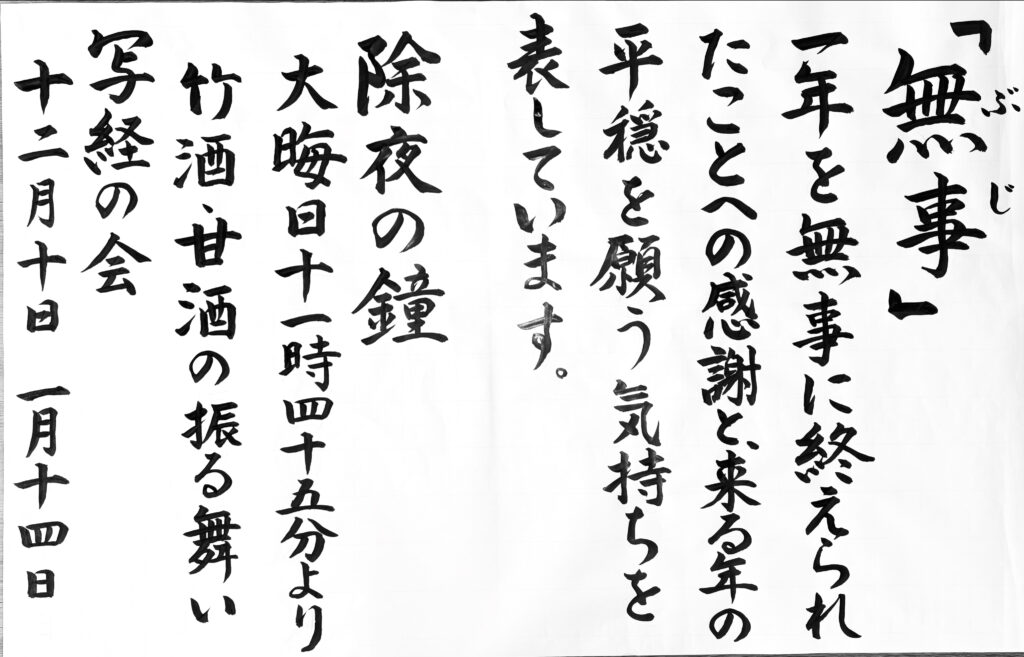 「無事」
ぶじ
一年を無事に終えられ
たことへの感謝と、来る年の
平穏を願う気持ちを
表しています。
除夜の鐘
大晦日十一時四十五分より
竹酒、甘酒の振る舞い
写経の会
十二月十日 一月十四日